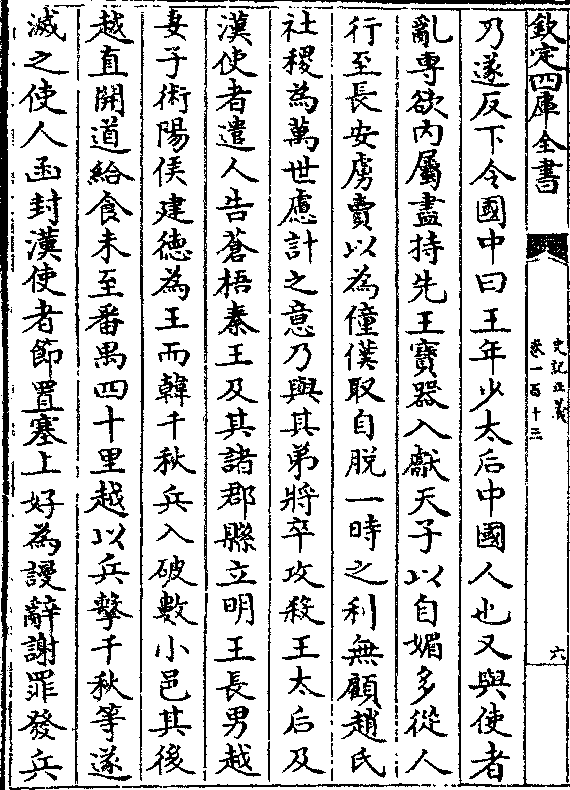 欽定四庫全書
史記正義
卷一百十三
六
乃遂反下令國中曰王年少太后中國人也又與使者
亂專欲内屬盡持先王寶器入獻天子以自媚多從人
行至長安虜賣以為僮僕取自脱一時之利無顧趙氏
社稷為萬世慮計之意乃與其弟將卒攻殺王太后及
漢使者遣人告蒼梧秦王及其諸郡縣立明王長男越
妻子術陽侯建德為王而韓千秋兵入破數小邑其後
越直開道給食未至番禺四十里越以兵擊千秋等遂
滅之使人函封漢使者節置塞上好為謾辭謝罪發兵